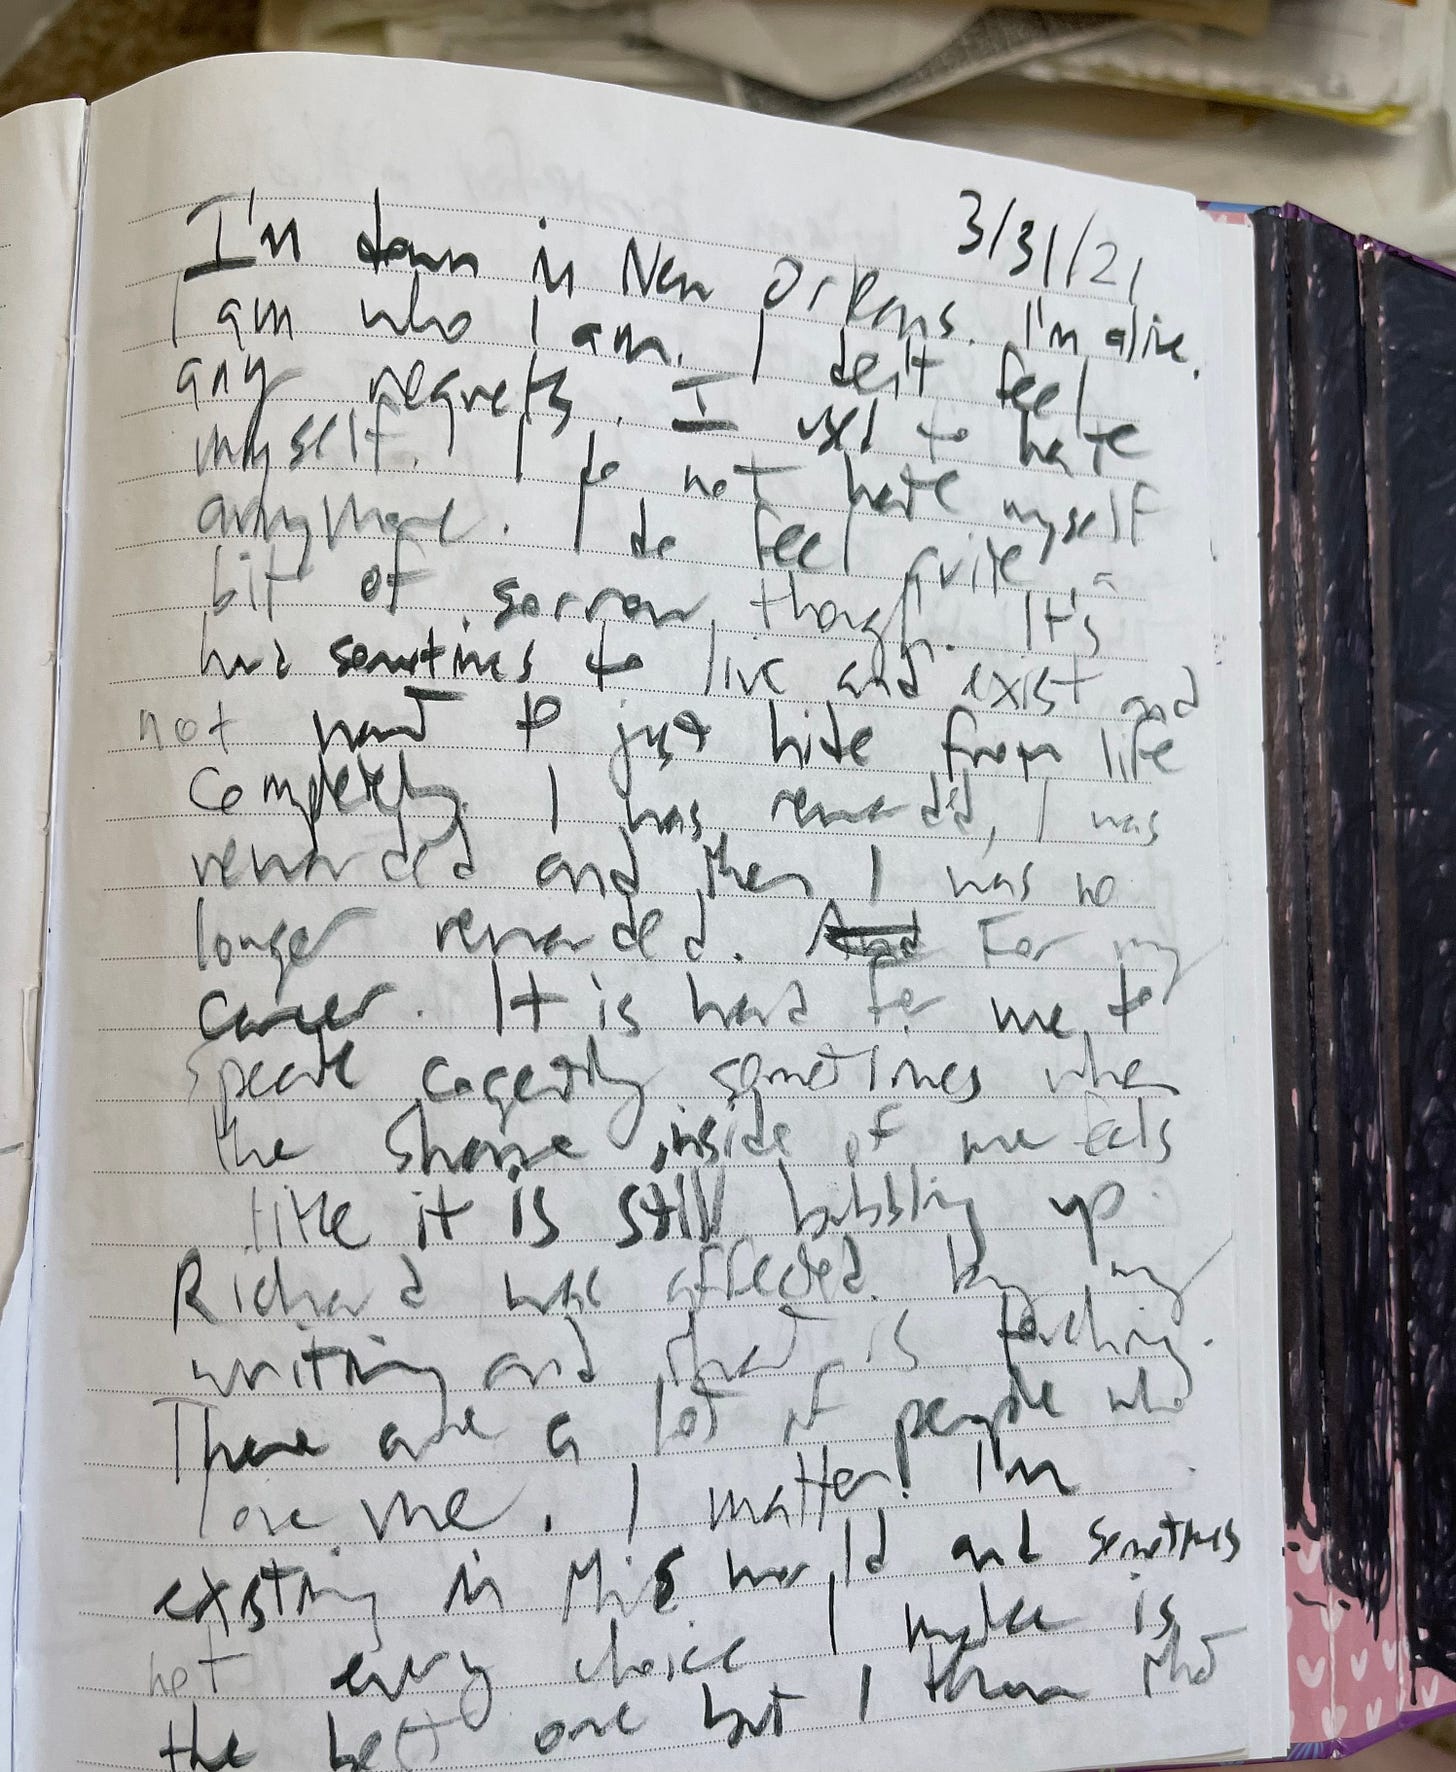 3/31/21
I'm down in New Orleans. I'm alive.
I am who I am. I don't feel
any regrets. I used to hate
myself. I do not hate myself
anymore. I do feel quite a
bit of sorrow, though. It's
hard sometimes to live and exist and
not want to just hide from life
completely. I was rewarded, I was
rewarded and then I was no
longer rewarded. And For my
career. It is hard for me to
speak cogently sometimes when
the shame inside of me feels
like it is still bubbling up.
Richard was affected by my
writing and that is touching.
There are a lot of people who
love me. I matter! I'm
existing in this world and sometimes
not every choice I make is
the best one but I that